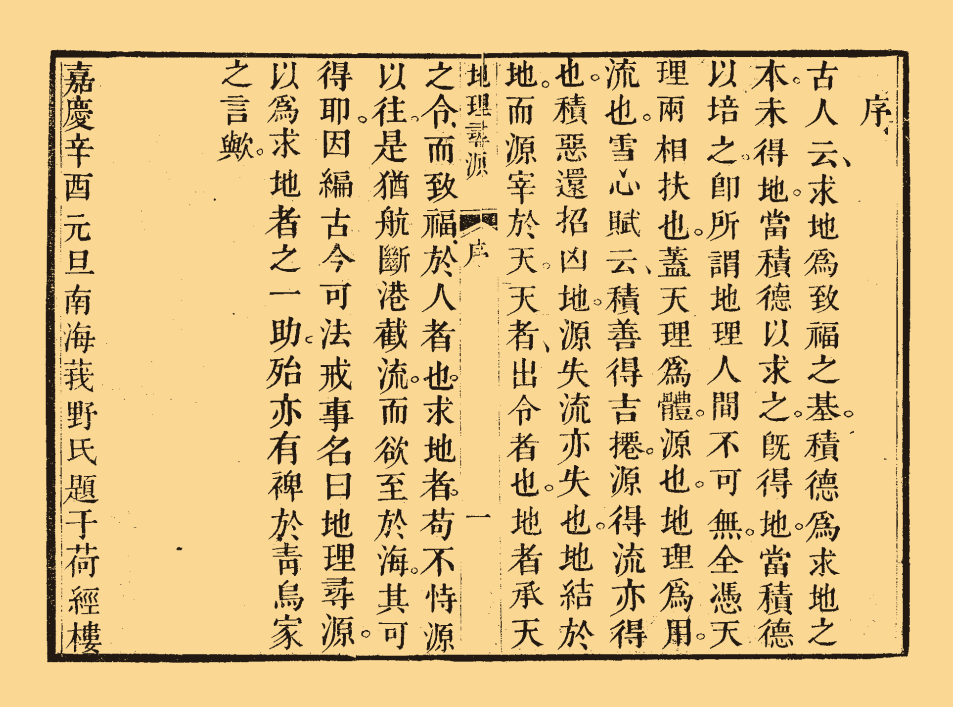 序
古人云、求地為致福之基。積德為求地之
本。未得地。當積德以求之。既得地。當積德
以培之。卽所謂地理人間不可無。全憑天
理兩相扶也。蓋天理為體。源也。地理為用。
流也。雪心賦云、積善得吉撥。源得流亦得
也。積惡還招凶地。源失流亦失也。地結於
地。而源宰於天。天者、出令者也。地者承天
地理尋源
序
一
之令、而致福、於人者也。求地者。苟不恃源
以往。是猶航斷港截流。而欲至於海。其可
得耶。因編古今可法戒事名曰地理尋源。
以為求地者之一助。殆亦有裨於靑烏家
之言歟。
嘉慶辛酉元旦南海莪野氏題于荷經樓